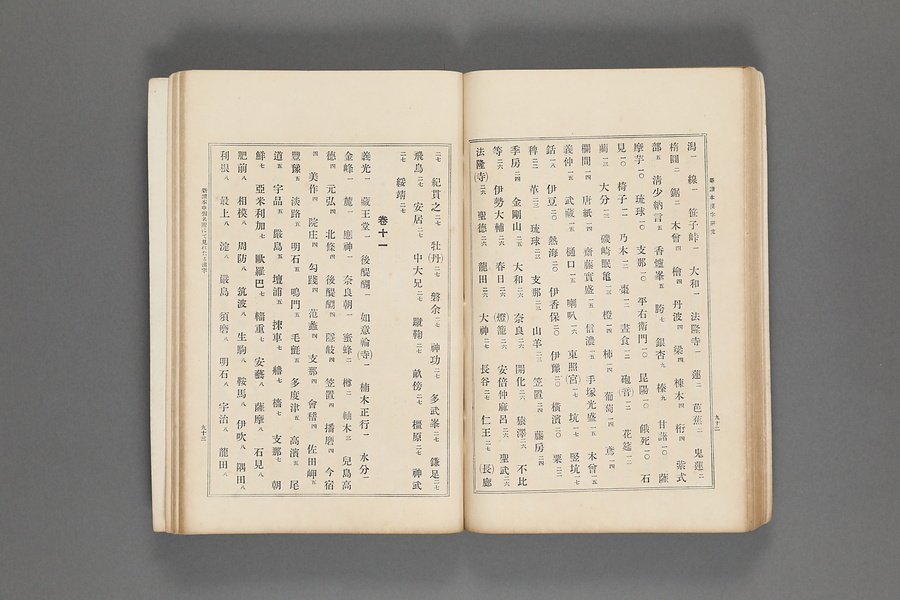 新讀本漢字研究
九十二
潟一 線一 笹子峠一 大和一 法隆寺一 蓮二 芭蕉二 鬼蓮二
楕圓二 鋸二 木曾四 檜四 丹波四 梁四 棟木四 桁四 紫式
部五 淸少納言五 香爐峯五 勝六 銀杏九 榛九 甘藷一〇 薩
摩芋一〇 琉球一〇 支那一〇 平右衛門一〇 昆陽一〇 餓死一〇 石
見一〇 椅子一二 乃木一二 棗一二 晝食一二 砲(音)一二 花筵一二
繭一三 大分一三 磯崎眠龜一三 橙一四 柿一四 葡萄一四 鳶一四
欄間一四 唐紙一四 齋藤實盛一五 信濃一五 手塚光盛一五 木曾一五
義仲一五 武藏一五 樋口一五 喇叭一六 東照(宮)一七 坑一七 竪坑一七
銛一八 伊豆二〇 熱海二〇 伊香保二〇 伊豫二〇 橫濱二〇 栗二二
稗二二 革二三 琉球二三 支那二三 山羊二三 笠置二四 藤房二四
季房二四 金剛山二五 大和二六 奈良二六 開化二六 猿澤二六 不比
等二六 伊勢大輔二六 春日二六 (燈)籠二六 安倍仲麻呂二六 聖武二六
法隆(寺)二六 聖德二六 龍田二六 大神二七 長谷二七 仁王二七 (長)廊
二七 紀貫之二七 牡(丹)二七 磐余二七 神功二七 多武峯二七 鎌足二七
飛鳥二七 安居二七 中大兄二七 蹴鞠二七 畝傍二七 橿原二七 神武
二七 綏靖二七
卷十一
義光一 藏王堂一 後醍醐一 如意輪(寺)一 楠木正行一 水分一
金峰一 麓一 應神一 奈良朝一 蜜蜂二 樽二 軸木三 兒島高
德四 元弘四 北條四 後醍醐四 隱岐四 笠置四 播磨四 今宿
四 美作四 院庄四 勾踐四 范蠡四 支那四 會稽四 佐田岬五
豐豫五 淡路五 明石五 鳴門五 毛氈五 多度津五 高濱五 尾
道五 宇品五 嚴島五 壇浦五 揀車七 艪七 檣七 支那七 朝
鮮七 亞米利加七 歐羅巴七 輜重七 安藝八 薩摩八 石見八
肥前八 相模八 周防八 筑波八 生駒八 鞍馬八 伊吹八 隅田八
利根八 最上八 淀八 嚴島八 須磨八 明石八 宇治八 龍田八
九十三